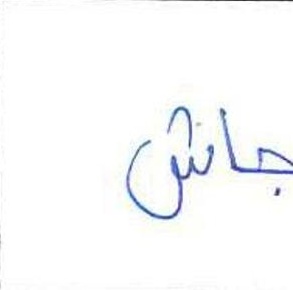 جانش